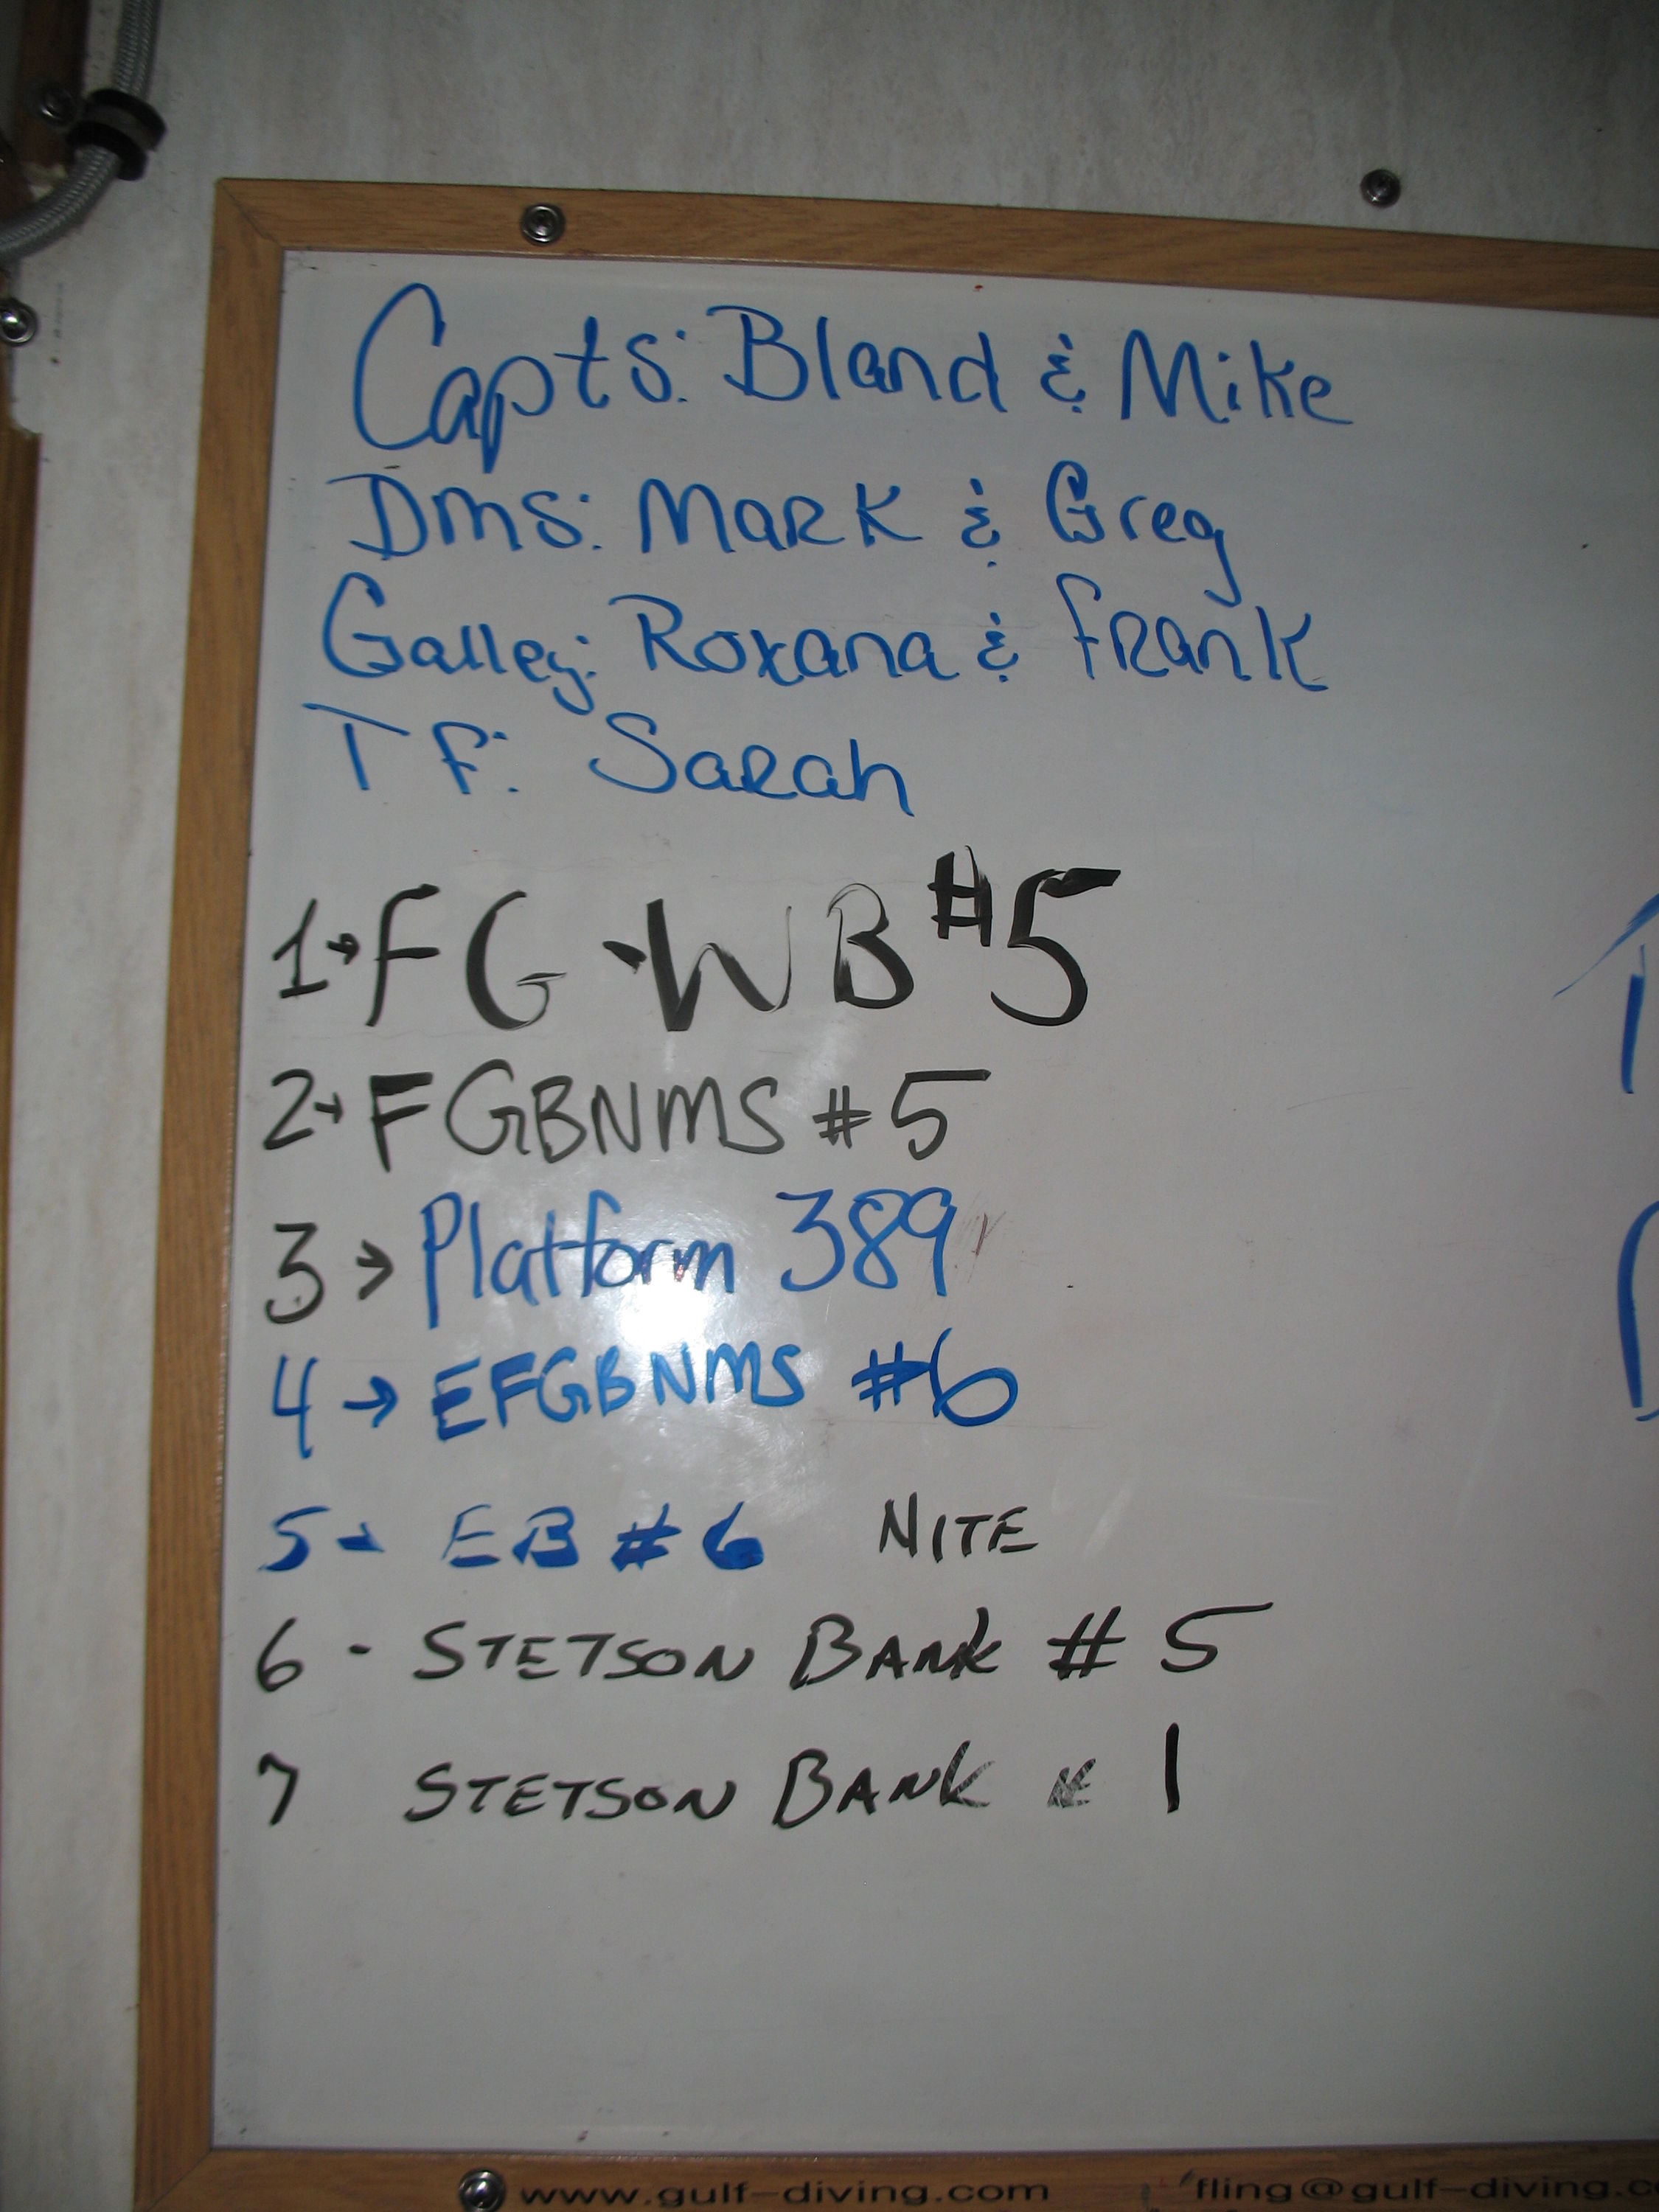 Capts: Bland & Mike
Dms: Mark & Greg
Galley: Roxana & Frank
TF: Sarah
1→ FG-WB #5
2→ FGBNMS #5
3 > Platform 389
4 → EFGBNMS #6
5- EB #6 NITE
6 - STETSON BANK # 5
7 STETSON BANK # 1
www.gulf-diving.com fling@gulf-diving.c